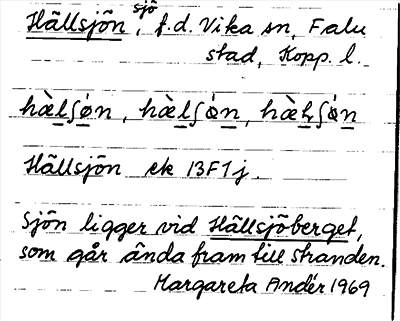 Hällsjön, sjö, f.d. Vika sn, Falu
stad, Kopp. l.
hæ̀lʃø̀n, hæ̀lʃò̤n, hæ̀lʃò̤n
Hällsjön ek 13F1j.
Sjön ligger vid Hällsjöberget,
som går ända fram till stranden.
Margareta Andér 1969